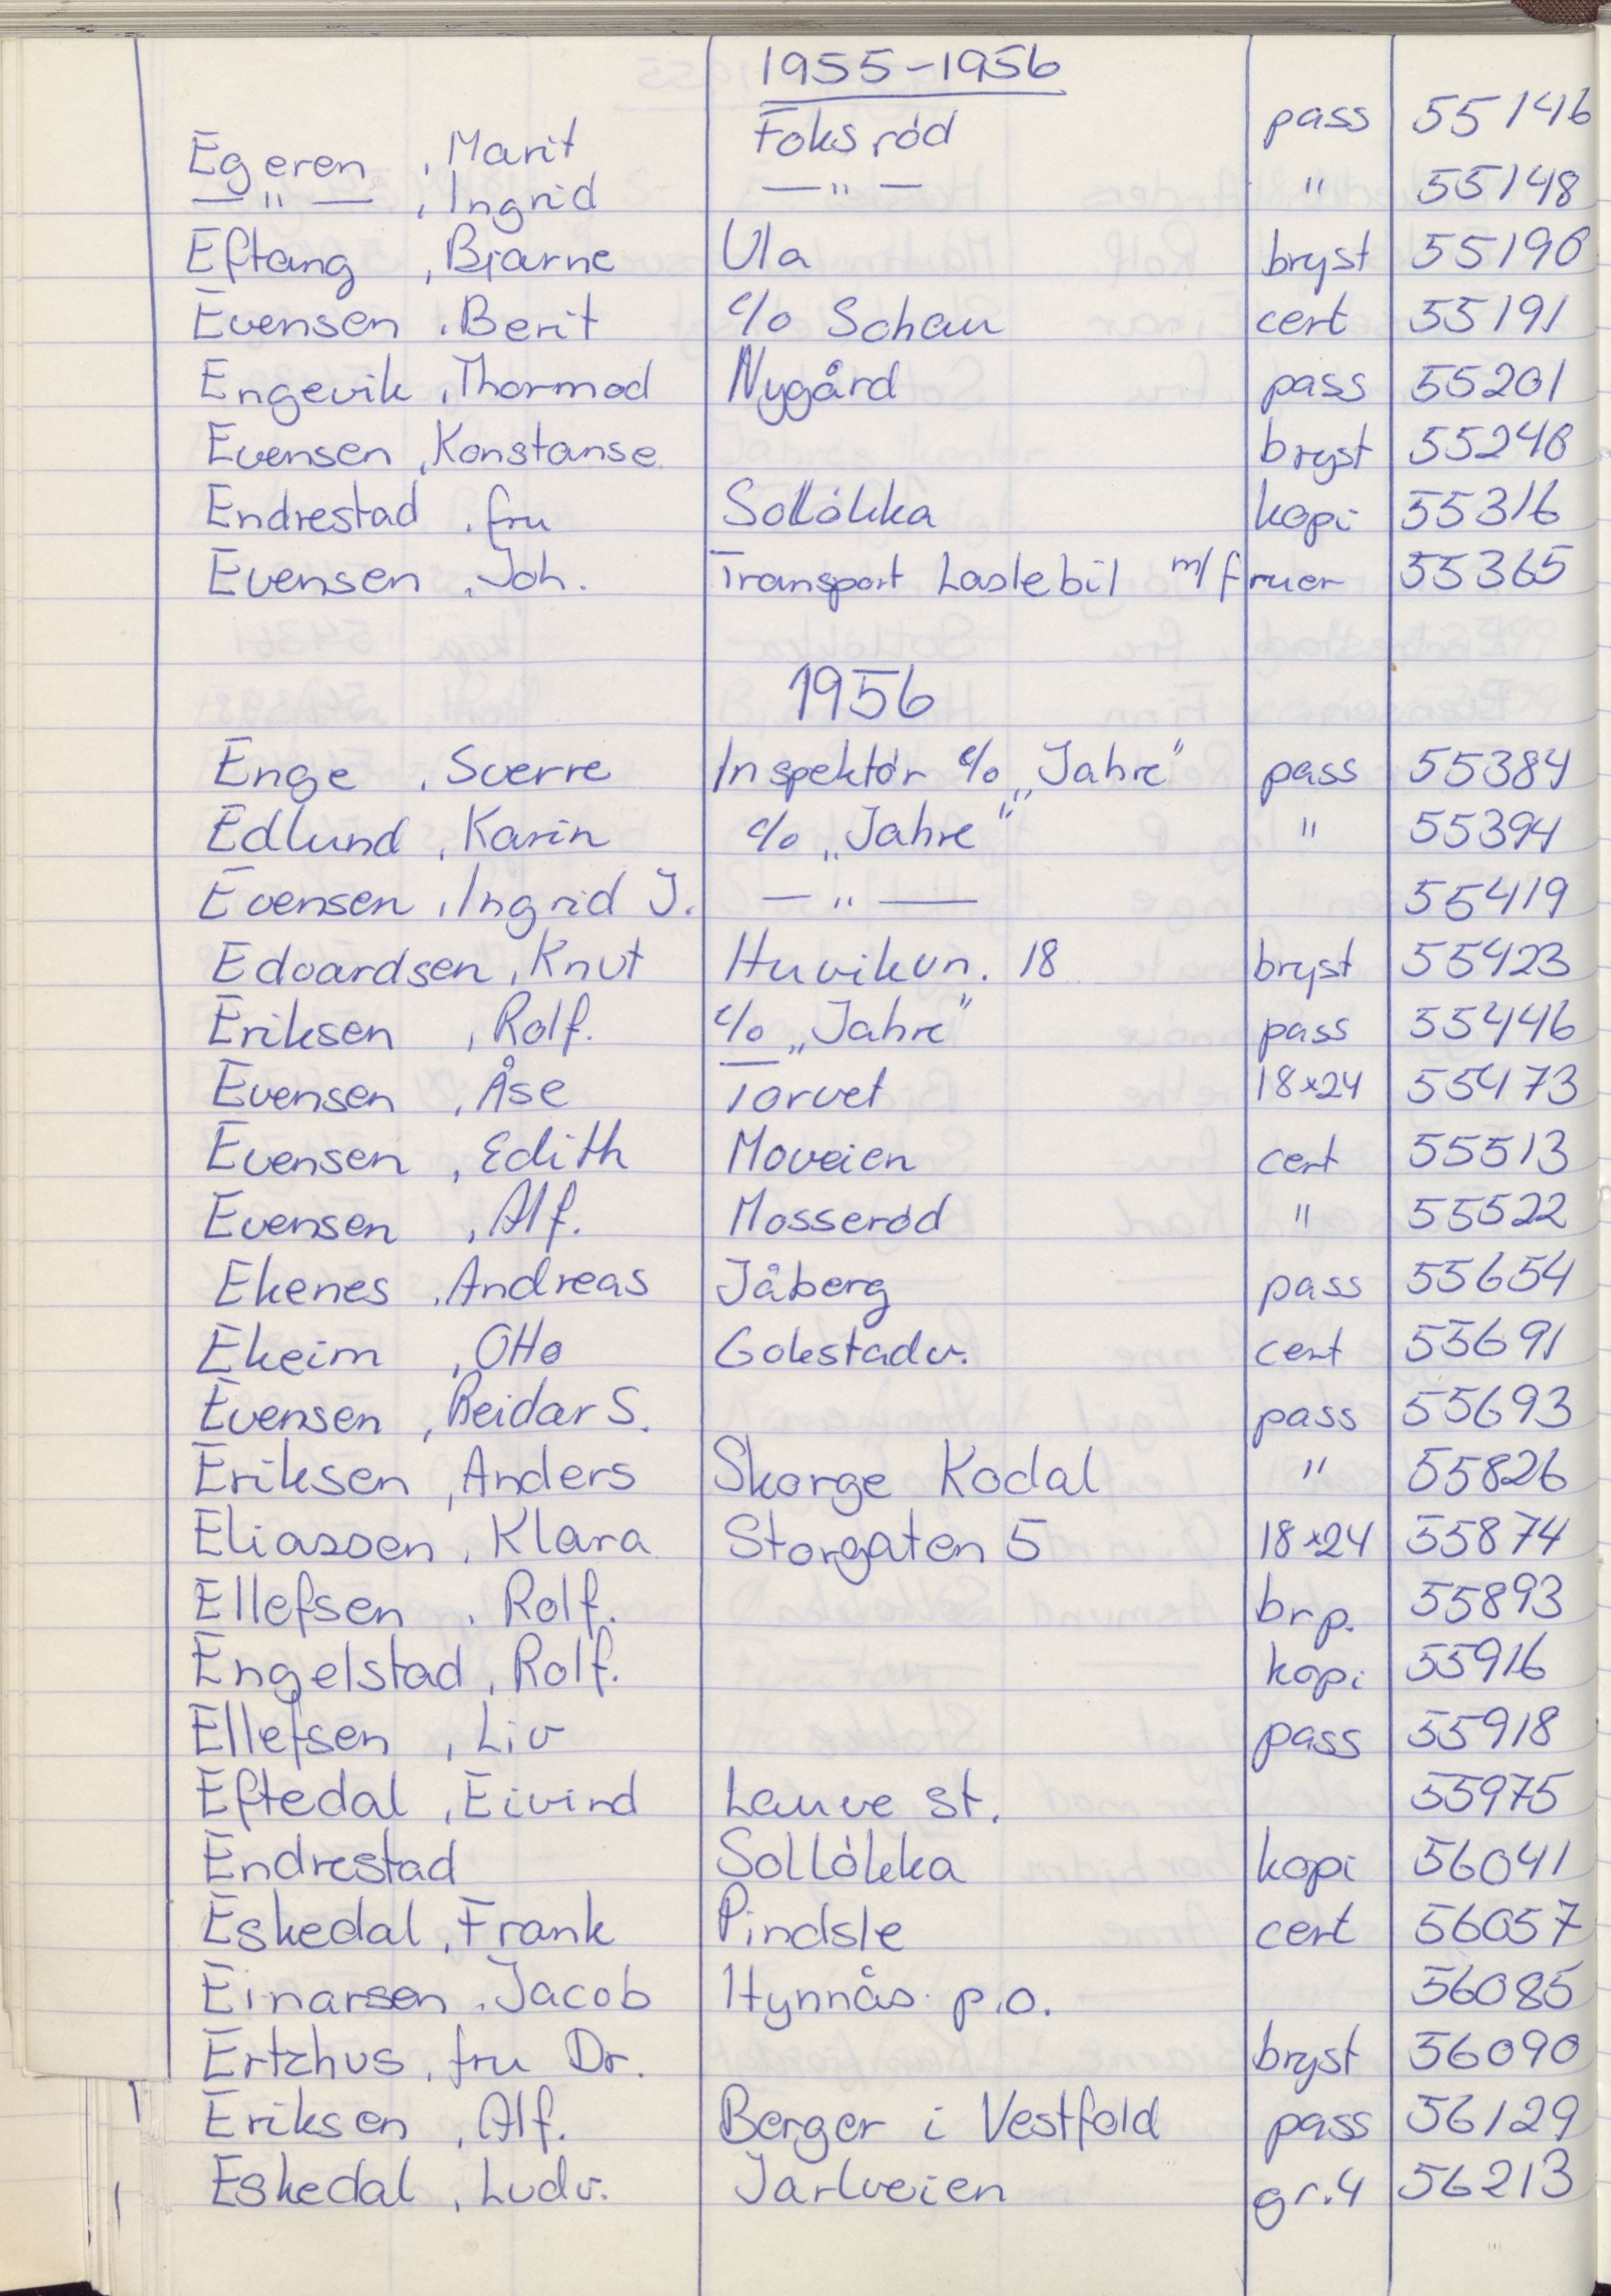 1955-1956
Egeren , Marit Foksröd pass 55146
—"— , Ingrid —"— " 55148
Eftang , Bjarne Ula bryst 55190
Evensen , Berit c/o Schau cert 55191
Engevik , Thormod Nygård pass 55201
Evensen , Konstanse bryst 55248
Endrestad , fru Sollökka kopi 55316
Evensen , Joh. Transport Lastebil m/fruer 55365
1956
Enge , Sverre Inspektör c/o „Jahre" pass 55384
Edlund , Karin c/o „Jahre" " 55394
Evensen , Ingrid J. —"— 55419
Edvardsen , Knut Huvikvn. 18 bryst 55423
Eriksen , Rolf. c/o „Jahre" pass 55446
Evensen , Åse Torvet 18x24 55473
Evensen , Edith Moveien cert 55513
Evensen , Alf. Mosseröd " 55522
Ekenes , Andreas Jåberg pass 55654
Ekeim , Otto Gokstadv. cert 55691
Evensen , Reidar S. pass 55693
Eriksen , Anders Skorge Kodal " 55826
Eliassen , Klara Storgaten 5 18x24 55874
Ellefsen , Rolf. br p. 55893
Engelstad , Rolf. kopi 55916
Ellefsen , Liv pass 55918
Eftedal , Eivind Lauve st. 55975
Endrestad Sollökka kopi 56041
Eskedal , Frank Pindsle cert 56057
Einarsen , Jacob Hynnås p.o. 56085
Ertzhus , fru Dr. bryst 56090
Eriksen , Alf. Berger i Vestfold pass 56129
Eskedal , Ludv. Jarlveien gr.4 56213